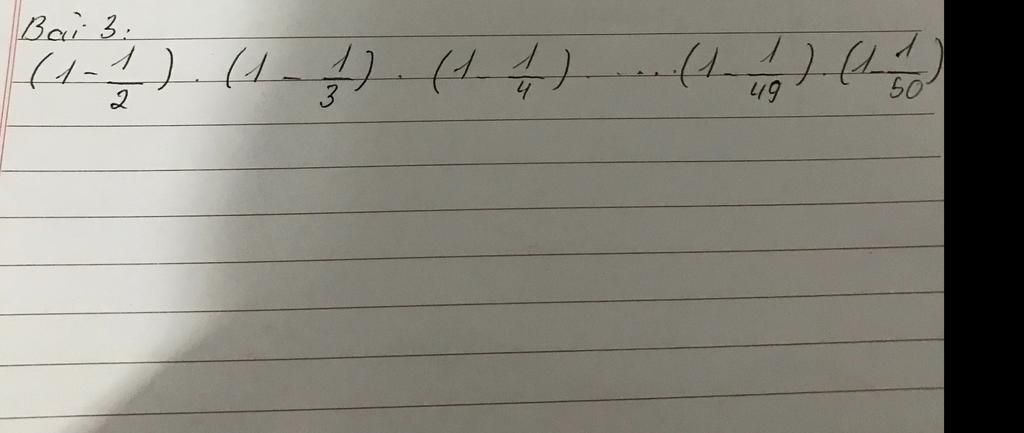 Bài 3:
(1 - 1/2) . (1 - 1/3) . (1 - 1/4) ..... (1 - 1/49) . (1 - 1/50)